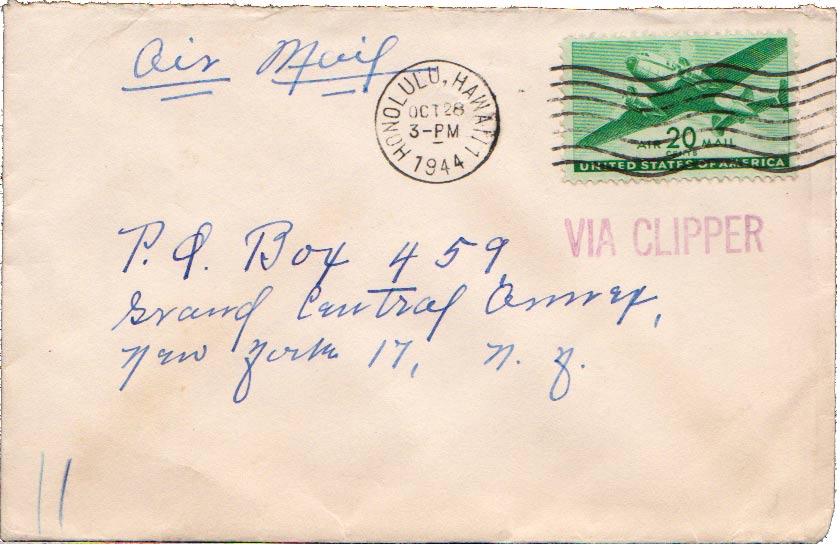 Air Mail
HONOLULU, HAWAII 1
OCT 28
3-PM
1944
AIR 20 MAIL
CENTS
UNITED STATES OF AMERICA
VIA CLIPPER
P.O. Box 459,
Grand Central Annex,
New York 17, N.Y.
11